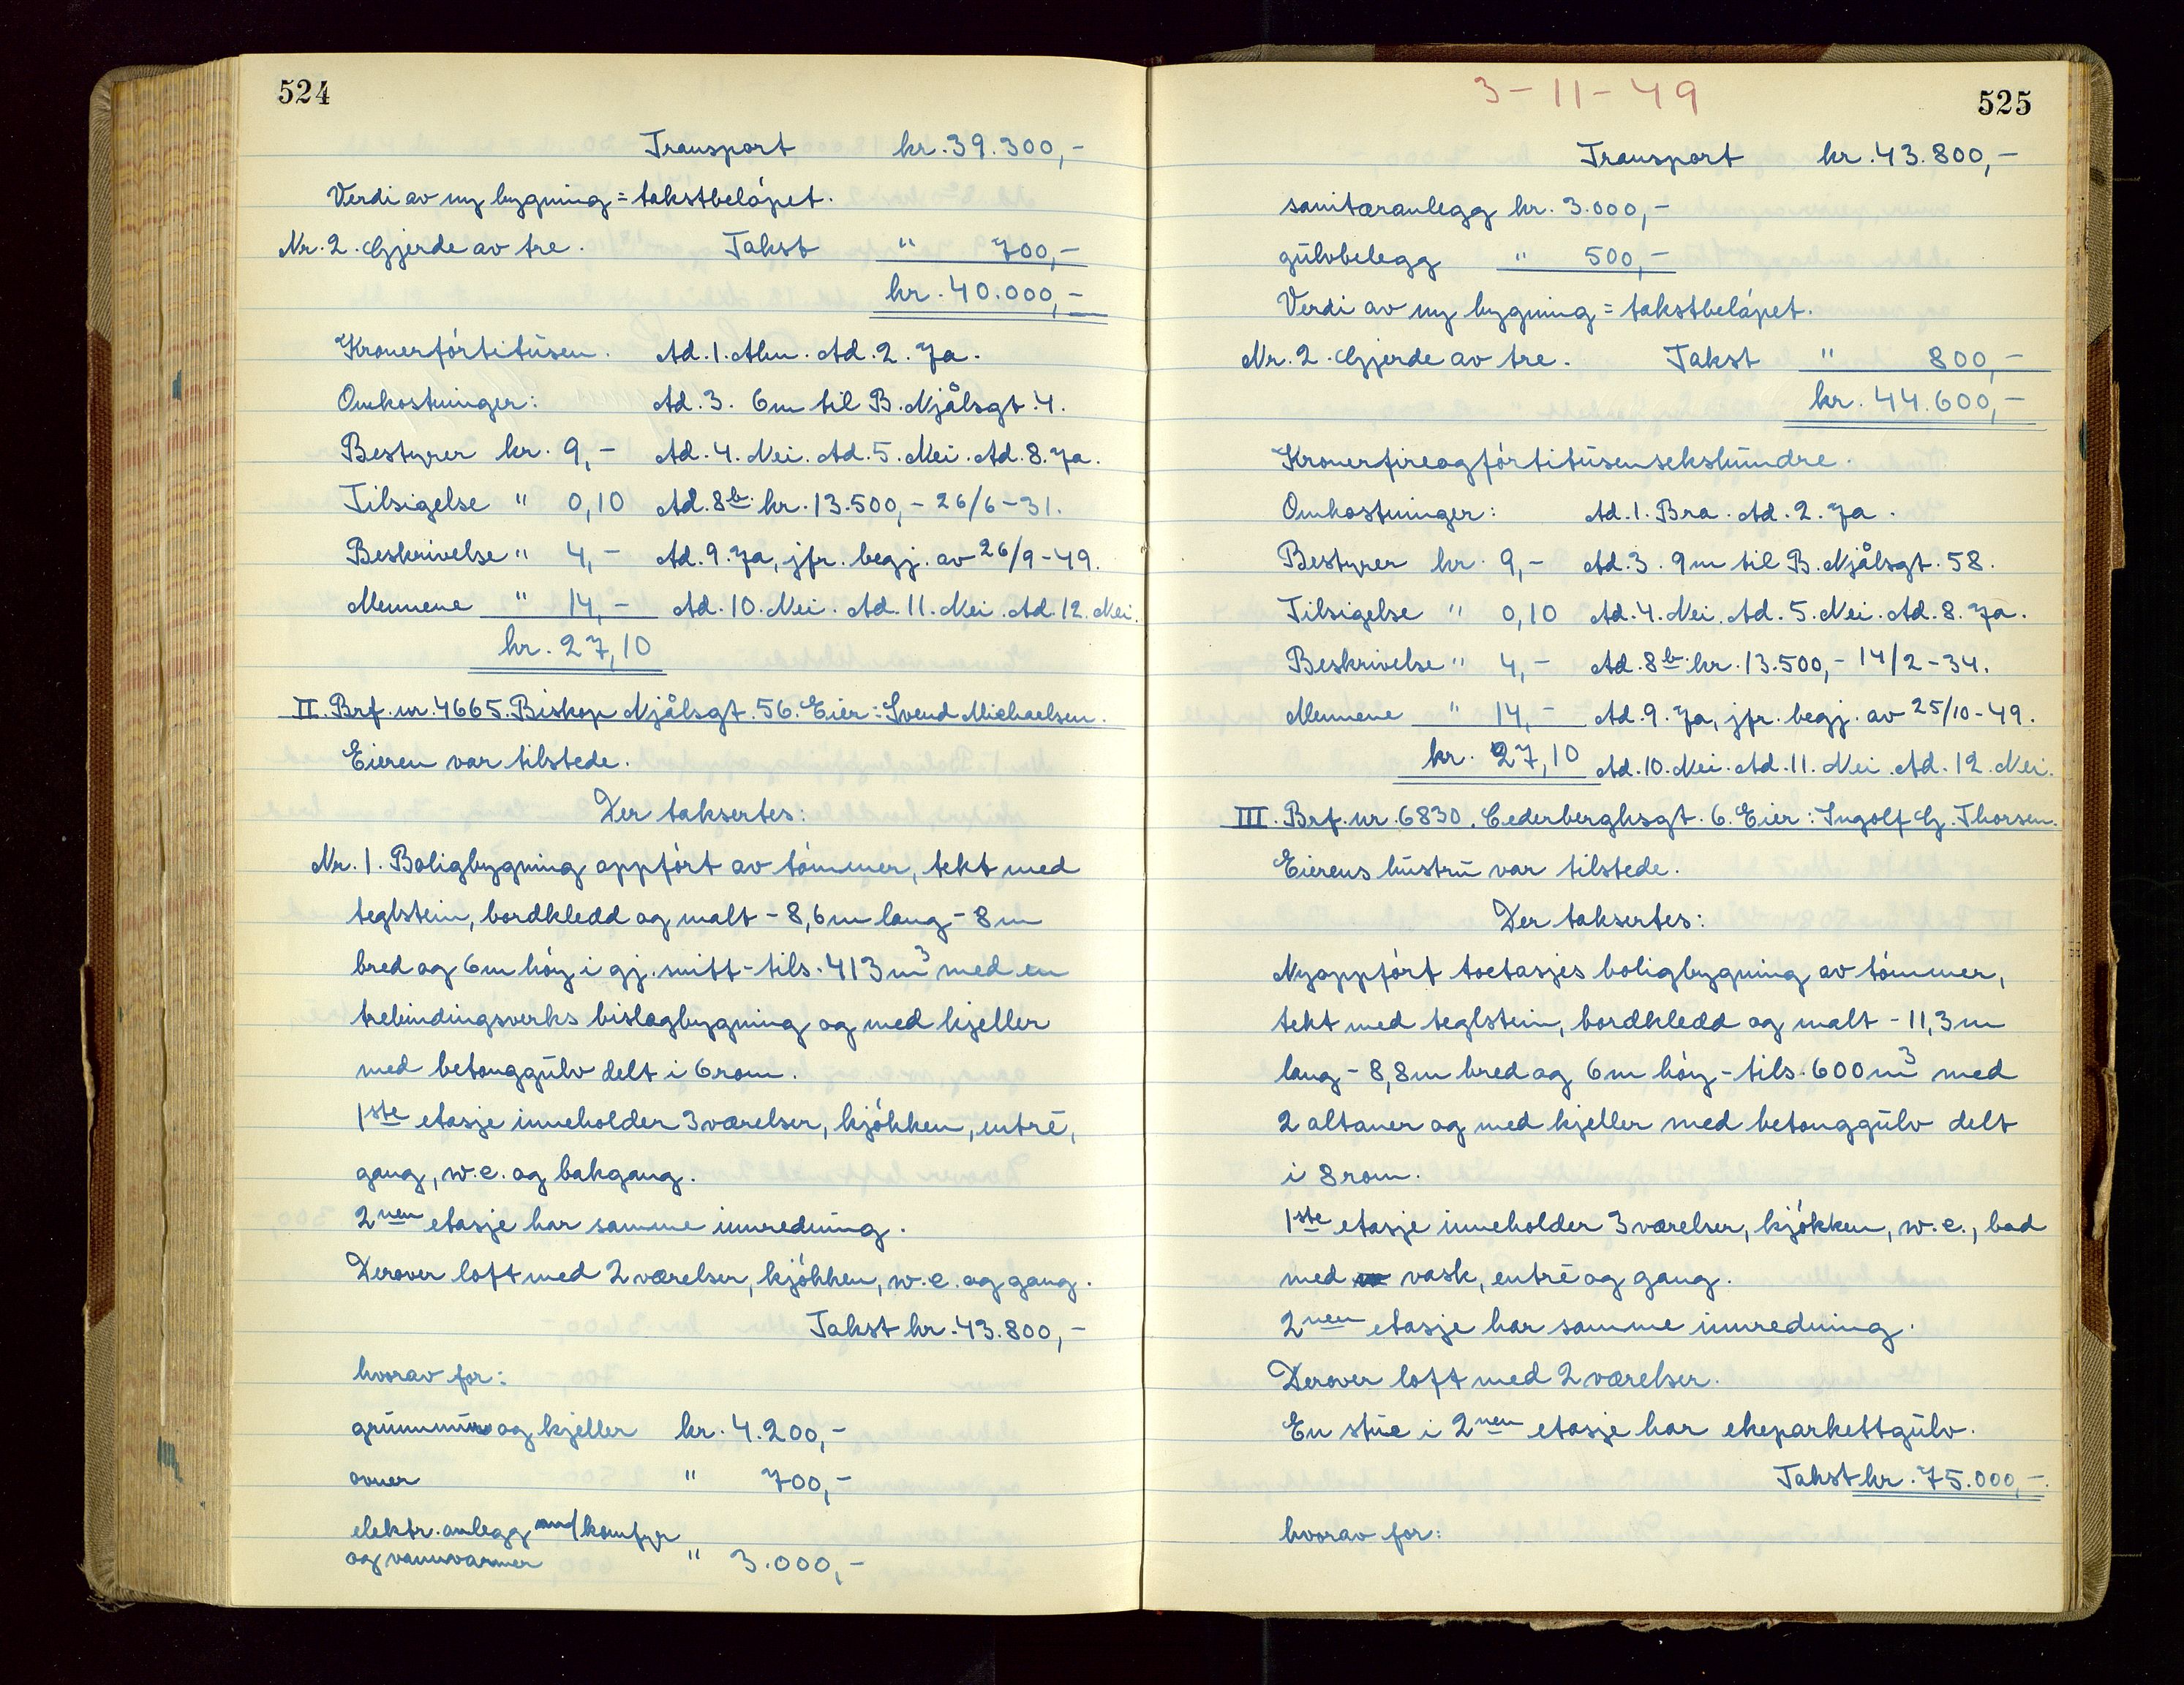 524
Transport kr. 39.300,-
Verdi av ny bygning = takstbeløpet.
Nr. 2. Gjerde av tre. Takst " 700,-
kr. 40.000,-
Kronerførtitusen. Ad. 1. Alm. Ad. 2. Ja.
Omkostninger: Ad. 3. 6m til B. Njålsgt. 4.
Bestyrer kr. 9,- Ad. 4. Nei. Ad. 5. Nei. Ad. 8. Ja.
Tilsigelse " 0,10 Ad. 8b. kr. 13.500,- 26/6-31.
Beskrivelse " 4,- Ad. 9. Ja, jfr. begj. av 26/9-49.
Mennene " 14,- Ad. 10. Nei. Ad. 11. Nei. Ad. 12. Nei.
kr. 27,10
II. Brf. nr. 4665. Biskop Njålsgt. 56. Eier: Svend Michaelsen.
Eieren var tilstede.
Der taksertes:
Nr. 1. Boligbygning oppført av tømmer, tekt med
teglstein, bordkledd og malt - 8,6m lang - 8m
bred og 6m høy i gj. snitt - tils. 413 m³ med en
trebindingsverks bislagbygning og med kjeller
med betonggulv delt i 6 rom.
1ste etasje inneholder 3 værelser, kjøkken, entré,
gang, w.c. og bakgang.
2nen etasje har samme innredning.
Derover loft med 2 værelser, kjøkken, w.c. og gang.
Takst kr. 43.800,-
hvorav for:
grunnmur og kjeller kr. 4.200,-
ovner " 700,-
elektr. anlegg med komfyr
og vannvarmer " 3.000,-
3-11-49
525
Transport kr. 43.800,-
sanitæranlegg kr. 3.000,-
gulvbelegg " 500,-
Verdi av ny bygning = takstbeløpet.
Nr. 2. Gjerde av tre. Takst " 800,-
kr. 44.600,-
Kronerfireogførtitusensekshundre.
Omkostninger: Ad. 1. Bra. Ad. 2. Ja.
Bestyrer kr. 9,- Ad. 3. 9m til B. Njålsgt. 58.
Tilsigelse " 0,10 Ad. 4. Nei. Ad. 5. Nei. Ad. 8. Ja.
Beskrivelse " 4,- Ad. 8b. kr. 13.500,- 14/2-34.
Mennene " 14,- Ad. 9. Ja, jfr. begj. av 25/10-49.
kr. 27,10 Ad. 10. Nei. Ad. 11. Nei. Ad. 12. Nei.
III. Brf. nr. 6830. Cederberghsgt. 6. Eier: Ingolf G. Thorsen.
Eierens hustru var tilstede.
Der taksertes:
Nyoppført toetasjes boligbygning av tømmer,
tekt med teglstein, bordkledd og malt - 11,3m
lang - 8,8m bred og 6m høy - tils. 600 m³ med
2 altaner og med kjeller med betonggulv delt
i 8 rom.
1ste etasje inneholder 3 værelser, kjøkken, w.c., bad
med vask, entré og gang.
2nen etasje har samme innredning.
Derover loft med 2 værelser.
En stue i 2nen etasje har ekeparkettgulv.
Takst kr. 75.000,-
hvorav for: